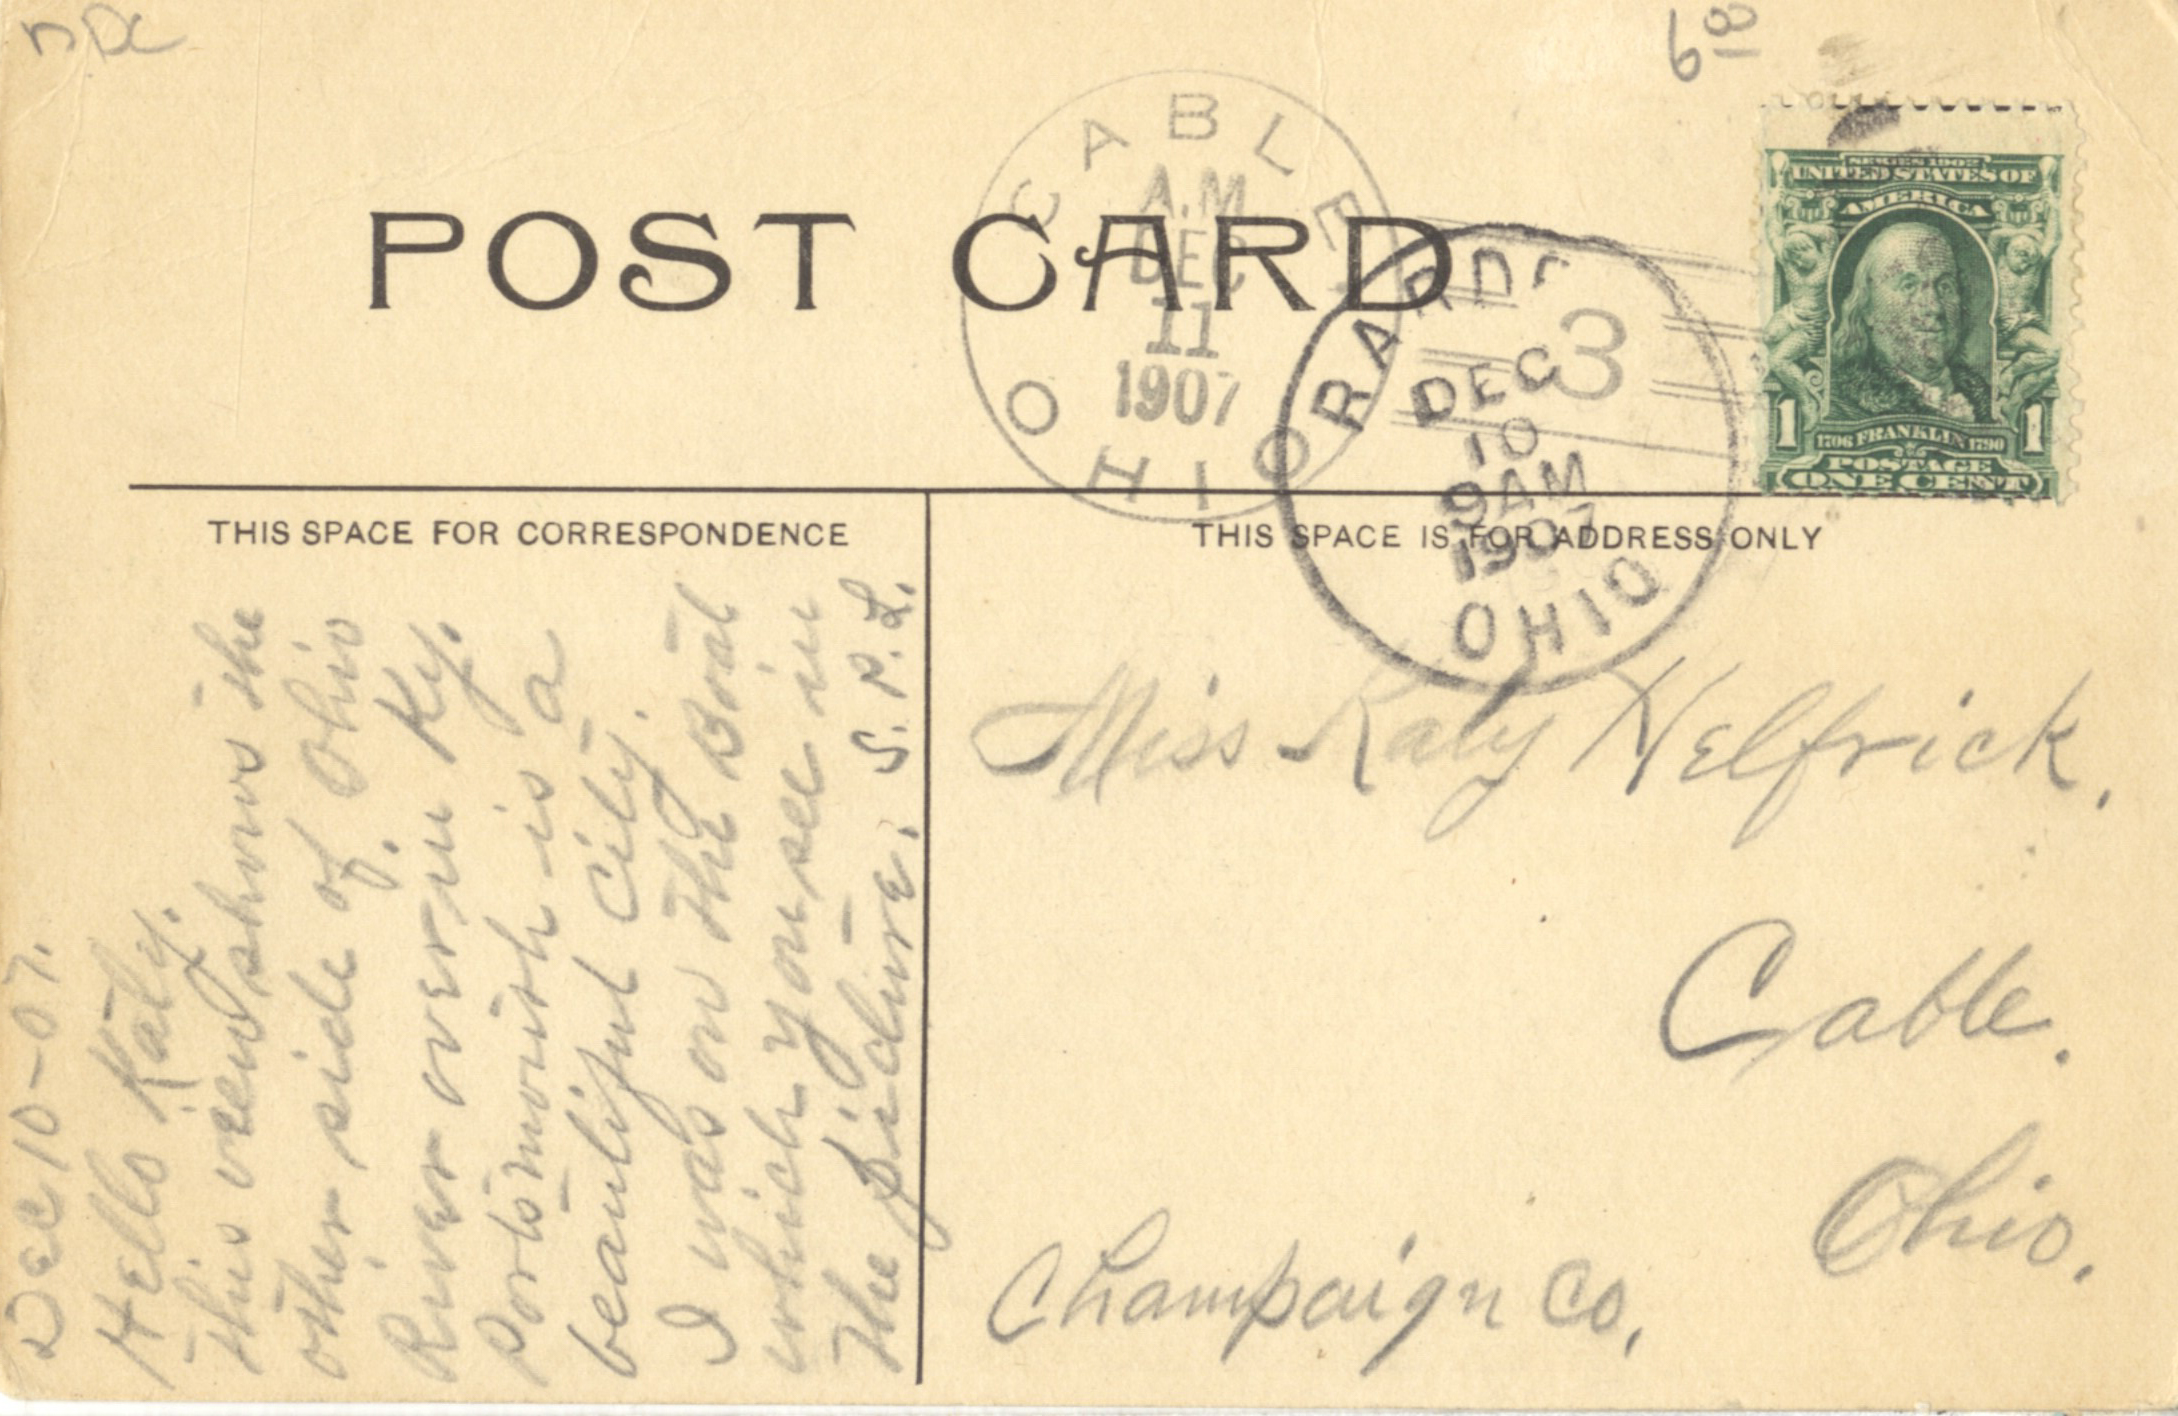 6 8
CABLE
A.M.
DEC
11
1907
OHIO
POST CARD
3
RARD
DEC
10
9AM
1907
OHIO
SERIES 1902
UNITED STATES OF
AMERICA
1706 FRANKLIN 1790
1 1
POSTAGE
ONE CENT
THIS SPACE FOR CORRESPONDENCE
THIS SPACE IS FOR ADDRESS ONLY
Dec 10-07.
Hello Katy.
This view shows the
other side of Ohio
River over in Ky.
Portsmouth is a
beautiful City.
I was on the Boat
which you see in
the picture. S. P. L.
Miss Katy Helfrick,
Cable.
Ohio.
Champaign Co,